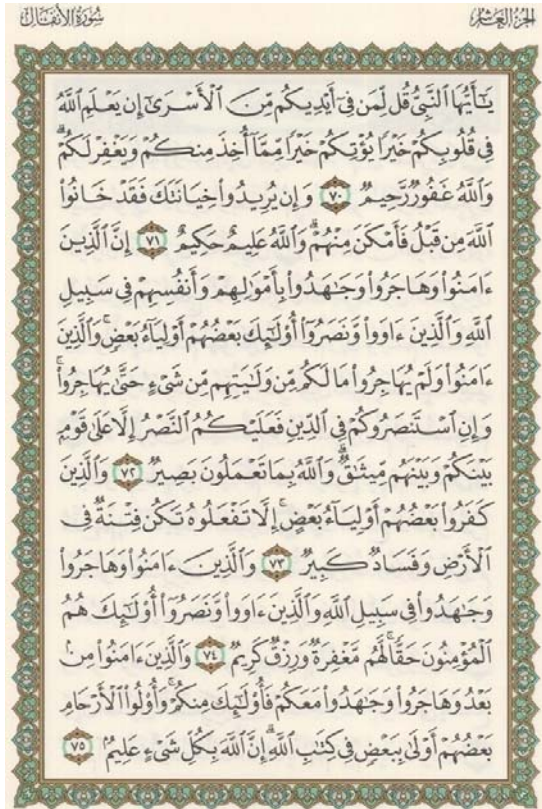 الجزء العاشر
سورة الأنفال
يَـٰٓأَيُّهَا ٱلنَّبِىُّ قُل لِّمَن فِىٓ أَيْدِيكُم مِّنَ ٱلْأَسْرَىٰٓ إِن يَعْلَمِ ٱللَّهُ
فِى قُلُوبِكُمْ خَيْرًا يُؤْتِكُمْ خَيْرًا مِّمَّآ أُخِذَ مِنكُمْ وَيَغْفِرْ لَكُمْ ۗ
وَٱللَّهُ غَفُورٌ رَّحِيمٌ ٧٠ وَإِن يُرِيدُوا۟ خِيَانَتَكَ فَقَدْ خَانُوا۟
ٱللَّهَ مِن قَبْلُ فَأَمْكَنَ مِنْهُمْ ۗ وَٱللَّهُ عَلِيمٌ حَكِيمٌ ٧١ إِنَّ ٱلَّذِينَ
ءَامَنُوا۟ وَهَاجَرُوا۟ وَجَـٰهَدُوا۟ بِأَمْوَٰلِهِمْ وَأَنفُسِهِمْ فِى سَبِيلِ
ٱللَّهِ وَٱلَّذِينَ ءَاوَوا۟ وَّنَصَرُوٓا۟ أُو۟لَـٰٓئِكَ بَعْضُهُمْ أَوْلِيَآءُ بَعْضٍ ۚ وَٱلَّذِينَ
ءَامَنُوا۟ وَلَمْ يُهَاجِرُوا۟ مَا لَكُم مِّن وَلَـٰيَتِهِم مِّن شَىْءٍ حَتَّىٰ يُهَاجِرُوا۟ ۚ
وَإِنِ ٱسْتَنصَرُوكُمْ فِى ٱلدِّينِ فَعَلَيْكُمُ ٱلنَّصْرُ إِلَّا عَلَىٰ قَوْمٍۭ
بَيْنَكُمْ وَبَيْنَهُم مِّيثَـٰقٌ ۗ وَٱللَّهُ بِمَا تَعْمَلُونَ بَصِيرٌ ٧٢ وَٱلَّذِينَ
كَفَرُوا۟ بَعْضُهُمْ أَوْلِيَآءُ بَعْضٍ ۚ إِلَّا تَفْعَلُوهُ تَكُن فِتْنَةٌ فِى
ٱلْأَرْضِ وَفَسَادٌ كَبِيرٌ ٧٣ وَٱلَّذِينَ ءَامَنُوا۟ وَهَاجَرُوا۟
وَجَـٰهَدُوا۟ فِى سَبِيلِ ٱللَّهِ وَٱلَّذِينَ ءَاوَوا۟ وَّنَصَرُوٓا۟ أُو۟لَـٰٓئِكَ هُمُ
ٱلْمُؤْمِنُونَ حَقًّا ۚ لَّهُم مَّغْفِرَةٌ وَرِزْقٌ كَرِيمٌ ٧٤ وَٱلَّذِينَ ءَامَنُوا۟ مِنۢ
بَعْدُ وَهَاجَرُوا۟ وَجَـٰهَدُوا۟ مَعَكُمْ فَأُو۟لَـٰٓئِكَ مِنكُمْ ۚ وَأُو۟لُوا۟ ٱلْأَرْحَامِ
بَعْضُهُمْ أَوْلَىٰ بِبَعْضٍ فِى كِتَـٰبِ ٱللَّهِ ۗ إِنَّ ٱللَّهَ بِكُلِّ شَىْءٍ عَلِيمٌۢ ٧٥